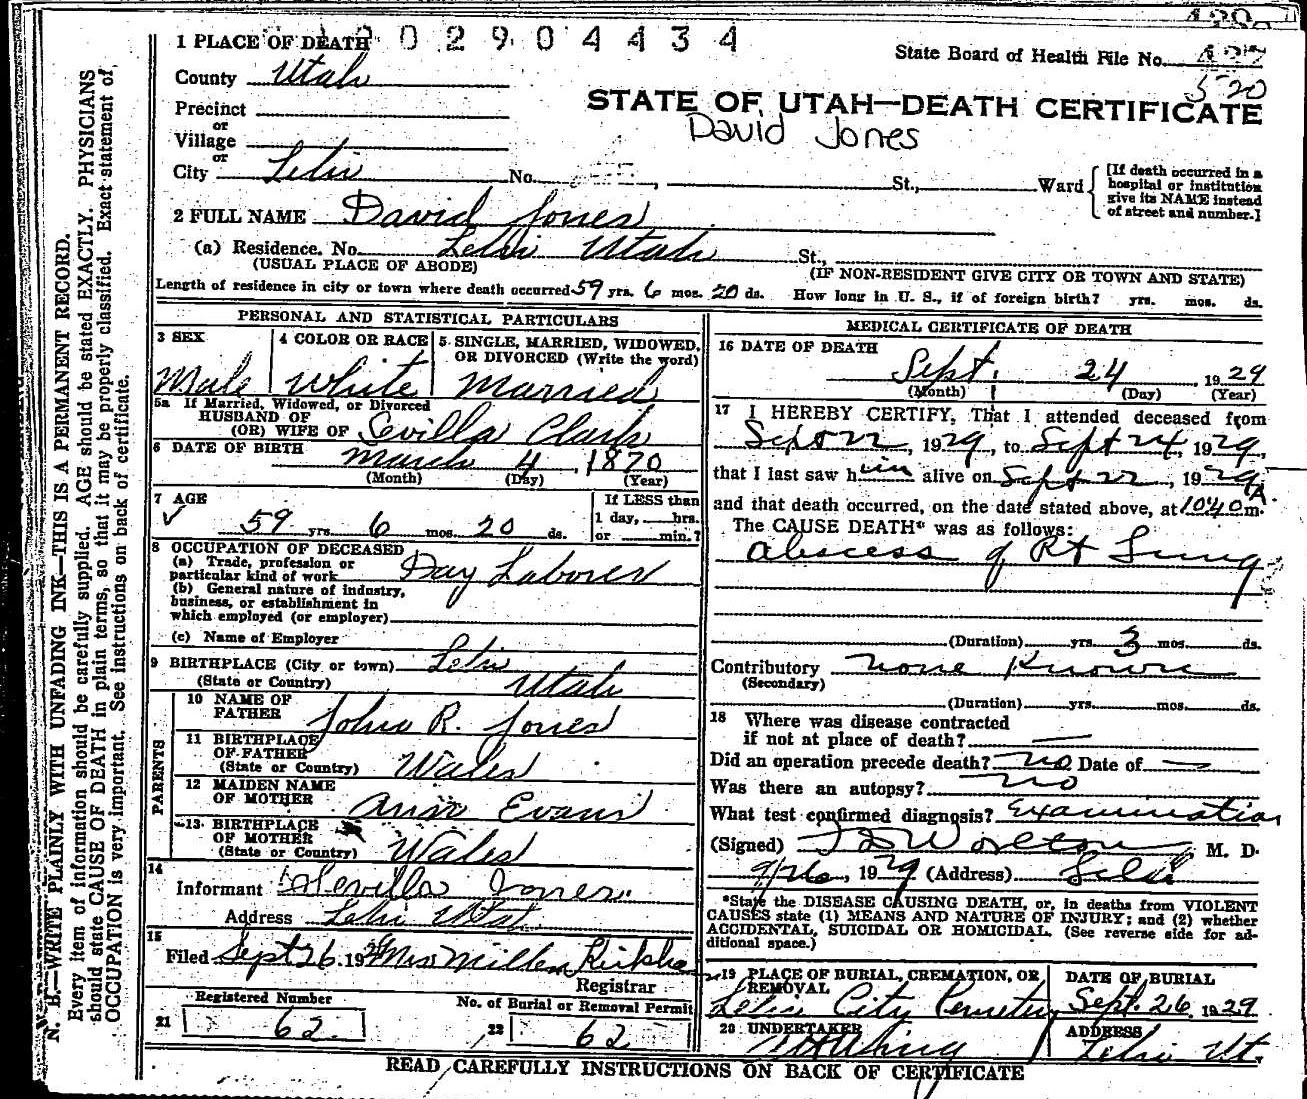 1 PLACE OF DEATH 0 2 9 0 4 4 3 4
State Board of Health File No.
County Utah
520
STATE OF UTAH—DEATH CERTIFICATE
Precinct
or
David Jones
Village
or
City Lehi No. St., Ward
[If death occurred in a hospital or institution give its NAME instead of street and number.]
2 FULL NAME David Jones
(a) Residence. No. Lehi Utah St.,
(USUAL PLACE OF ABODE) (IF NON-RESIDENT GIVE CITY OR TOWN AND STATE)
Length of residence in city or town where death occurred 59 yrs. 6 mos. 20 ds. How long in U. S., if of foreign birth? yrs. mos. ds.
PERSONAL AND STATISTICAL PARTICULARS
3 SEX Male
4 COLOR OR RACE White
5 SINGLE, MARRIED, WIDOWED, OR DIVORCED (Write the word) Married
5a If Married, Widowed, or Divorced
HUSBAND OF
(OR) WIFE OF Sevilla Clark
6 DATE OF BIRTH March 4, 1870
(Month) (Day) (Year)
7 AGE
59 yrs. 6 mos. 20 ds.
If LESS than
1 day, hrs.
or min.?
8 OCCUPATION OF DECEASED
(a) Trade, profession or
particular kind of work Day Laborer
(b) General nature of industry,
business, or establishment in
which employed (or employer)
(c) Name of Employer
9 BIRTHPLACE (City or town) Lehi
(State or Country) Utah
PARENTS
10 NAME OF
FATHER John R. Jones
11 BIRTHPLACE
OF FATHER
(State or Country) Wales
12 MAIDEN NAME
OF MOTHER Ann Evans
13 BIRTHPLACE
OF MOTHER
(State or Country) Wales
14
Informant Sevilla Jones
Address Lehi Utah
15
Filed Sept 26, 1929 Mrs Millen Kirkham
Registrar
Registered Number
21 62
No. of Burial or Removal Permit
22 62
MEDICAL CERTIFICATE OF DEATH
16 DATE OF DEATH
Sept. 24, 1929
(Month) (Day) (Year)
17 I HEREBY CERTIFY, That I attended deceased from
Sept 22, 1929, to Sept 24, 1929,
that I last saw him alive on Sept 22, 1929,
and that death occurred, on the date stated above, at 1040 A. m.
The CAUSE DEATH* was as follows:
abscess of Rt Lung
(Duration) yrs. 3 mos. ds.
Contributory none Known
(Secondary)
(Duration) yrs. mos. ds.
18 Where was disease contracted
if not at place of death? —
Did an operation precede death? no Date of —
Was there an autopsy? no
What test confirmed diagnosis? Examination
(Signed) Worlton M. D.
9/26, 1929 (Address) Lehi
*State the DISEASE CAUSING DEATH, or, in deaths from VIOLENT
CAUSES state (1) MEANS AND NATURE OF INJURY; and (2) whether
ACCIDENTAL, SUICIDAL OR HOMICIDAL. (See reverse side for ad-
ditional space.)
19 PLACE OF BURIAL, CREMATION, OR REMOVAL
Lehi City Cemetery
DATE OF BURIAL
Sept. 26 1929
20 UNDERTAKER
ADDRESS
Lehi Ut.
READ CAREFULLY INSTRUCTIONS ON BACK OF CERTIFICATE
N. B.—WRITE PLAINLY WITH UNFADING INK—THIS IS A PERMANENT RECORD.
Every item of information should be carefully supplied. AGE should be stated EXACTLY. PHYSICIANS
should state CAUSE OF DEATH in plain terms, so that it may be properly classified. Exact statement of
OCCUPATION is very important. See instructions on back of certificate.